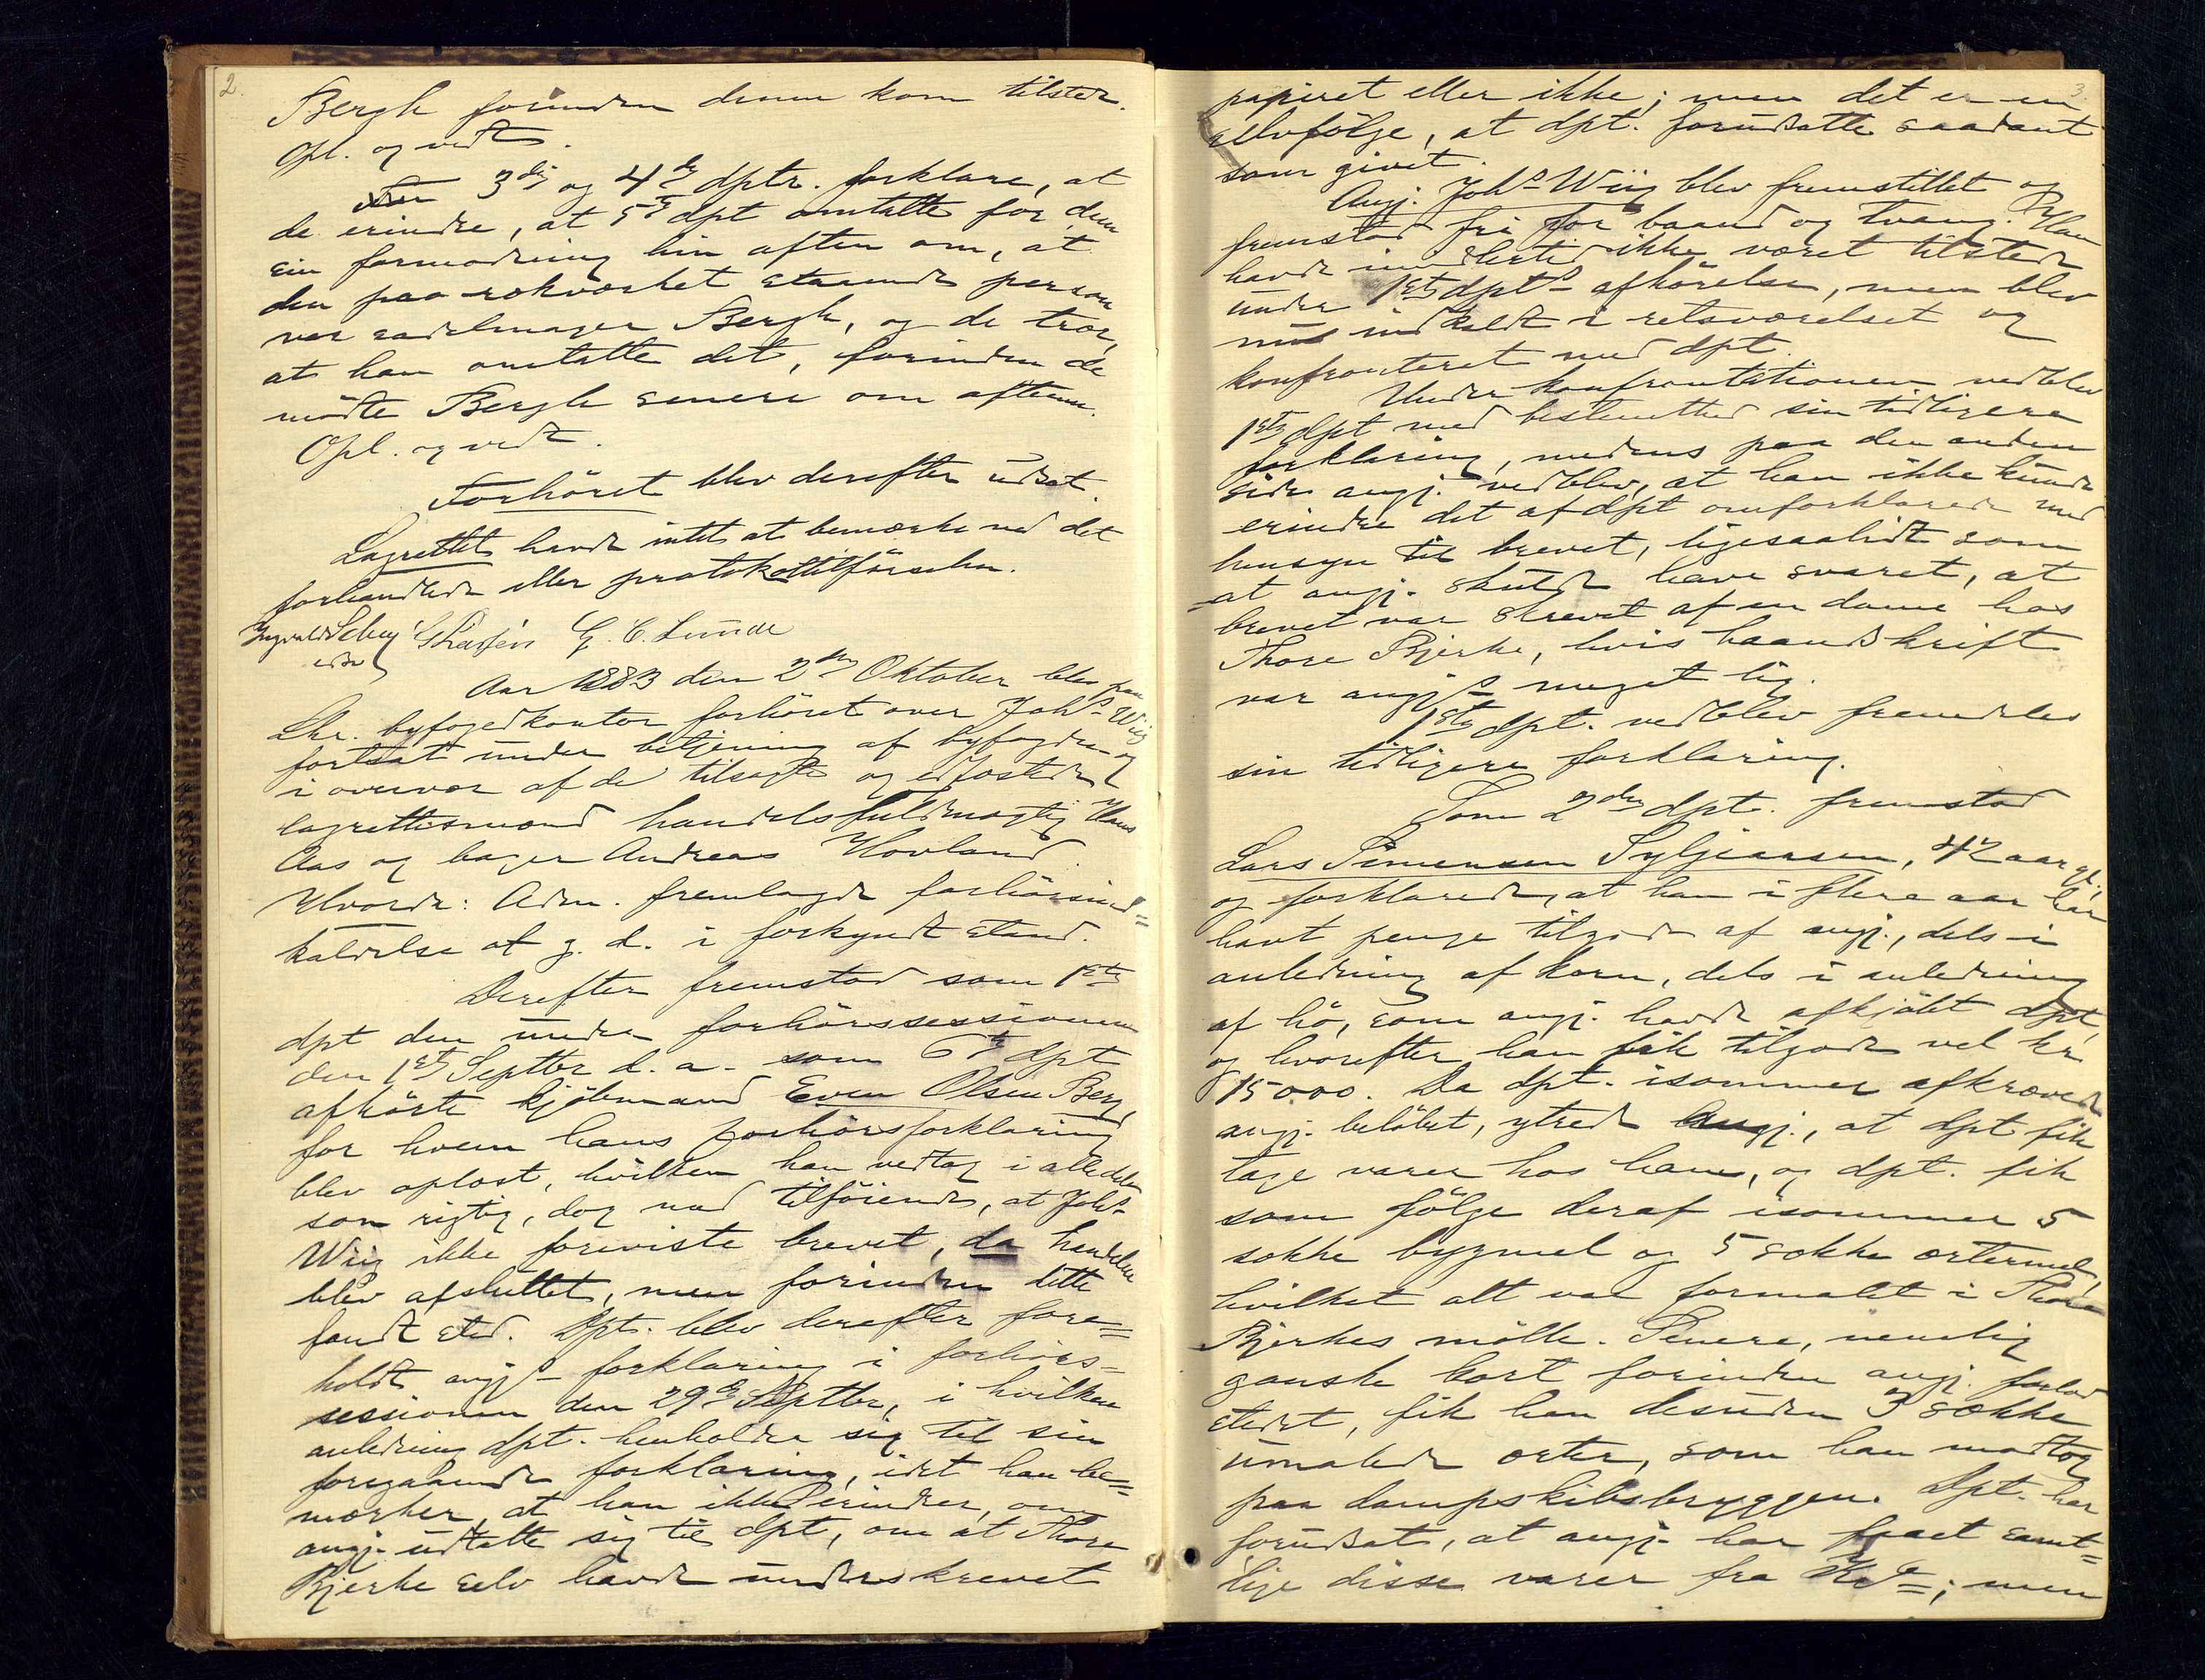 2.
Bergh forinden denne kom tilstede.
Opl. og vedt.
3die og 4de dptr. forklare, at
de erindre, at 5te dpt omtalte for dem
sin formodning hin aften om, at
den paa rækværket staaende person
var sadelmager Bergh, og de tror,
at han omtalte det, forinden de
mødte Bergh senere om aftenen.
Opl. og vedt.
Forhøret blev derefter udsat.
Lagrettet havde intet at bemærke ved det
forhandlede eller protokoltilførselen.
G. C. Lunde
Aar 1883 den 2den Oktober blev paa
Chr. byfogedkontor forhøret over Johs Wiig
fortsat under betjening af byfogden og
i overvær af de tilsagte og edfæstede
lagrettesmænd handelsfuldmægtig Hans
Aas og bager Andreas Hovland.
Hvorda: Adm. fremlagde forhørsind=
kaldelse af g. d. i forkyndt stand.
Derefter fremstod som 1ste
dpt den under forhørssessionen
den 1ste Septbr d. a. som 6te dpt
afhørte kjøbmand Even Olsen Berg,
for hvem hans forhørsforklaring
blev oplæst, hvilken han vedtog i alle dele
som rigtig, dog med tilføiende, at Johs
Wiig ikke foreviste brevet, da handelen
blev afsluttet, men forinden dette
fandt sted. Dpt. blev derefter fore=
holdt angjs forklaring i forhørs=
sessionen den 29de Septbr, i hvilken
anledning dpt. henholdte sig til sin
foregaaende forklaring, idet han be=
mærker, at han ikke erindrer, om
angj. udtalte sig til dpt, om at Thore
Bjerke selv havde underskrevet
3.
papiret eller ikke; men det er en
selvfølge, at dpt. forudsatte saadant
som givet.
Angj. Johs Wiig blev fremstillet og
fremstod fri for baand og tvang. Han
havde imidlertid ikke været tilstede
under 1ste dpts afhørelse, men blev
nu indkaldt i retsværelset og
konfronteret med dpt.
Under konfrontationen vedblev
1ste dpt med bestemthed sin tidligere
forklaring, medens paa den anden
side angj. vedblev, at han ikke kunde
erindre det af dpt omforklarede med
hensyn til brevet, ligesaalidt som
at angj. skulde have svaret, at
brevet var skrevet af en dame hos
Thore Bjerke, hvis haandskrift
var angjs meget lig.
1ste dpt. vedblev fremdeles
sin tidligere forklaring.
Som 2den dpt. fremstod
Lars Simensen Syljeaasen, 42 aar gl.,
og forklarede, at han i flere aar har
havt penge tilgode af angj., dels i
anledning af korn, dels i anledning
af hø, som angj. havde afkjøbt dpt,
og hvorefter han fik tilgode vel kr
15000. Da dpt. isommer afkrævede
angj. beløbet, ytrede angj., at dpt fik
tage varer hos ham, og dpt. fik
som følge deraf isommer 5
sække bygmel og 5 sække ertermel,
hvilket alt var formalet i Thore
Bjerkes mølle. Senere, nemlig
ganske kort forinden angj. forlod
stedet, fik han desuden 3 sække
umalede erter, som han modtog
paa dampskibsbryggen. Dpt. har
forudsat, at angj. har faaet samt=
lige disse varer fra; men